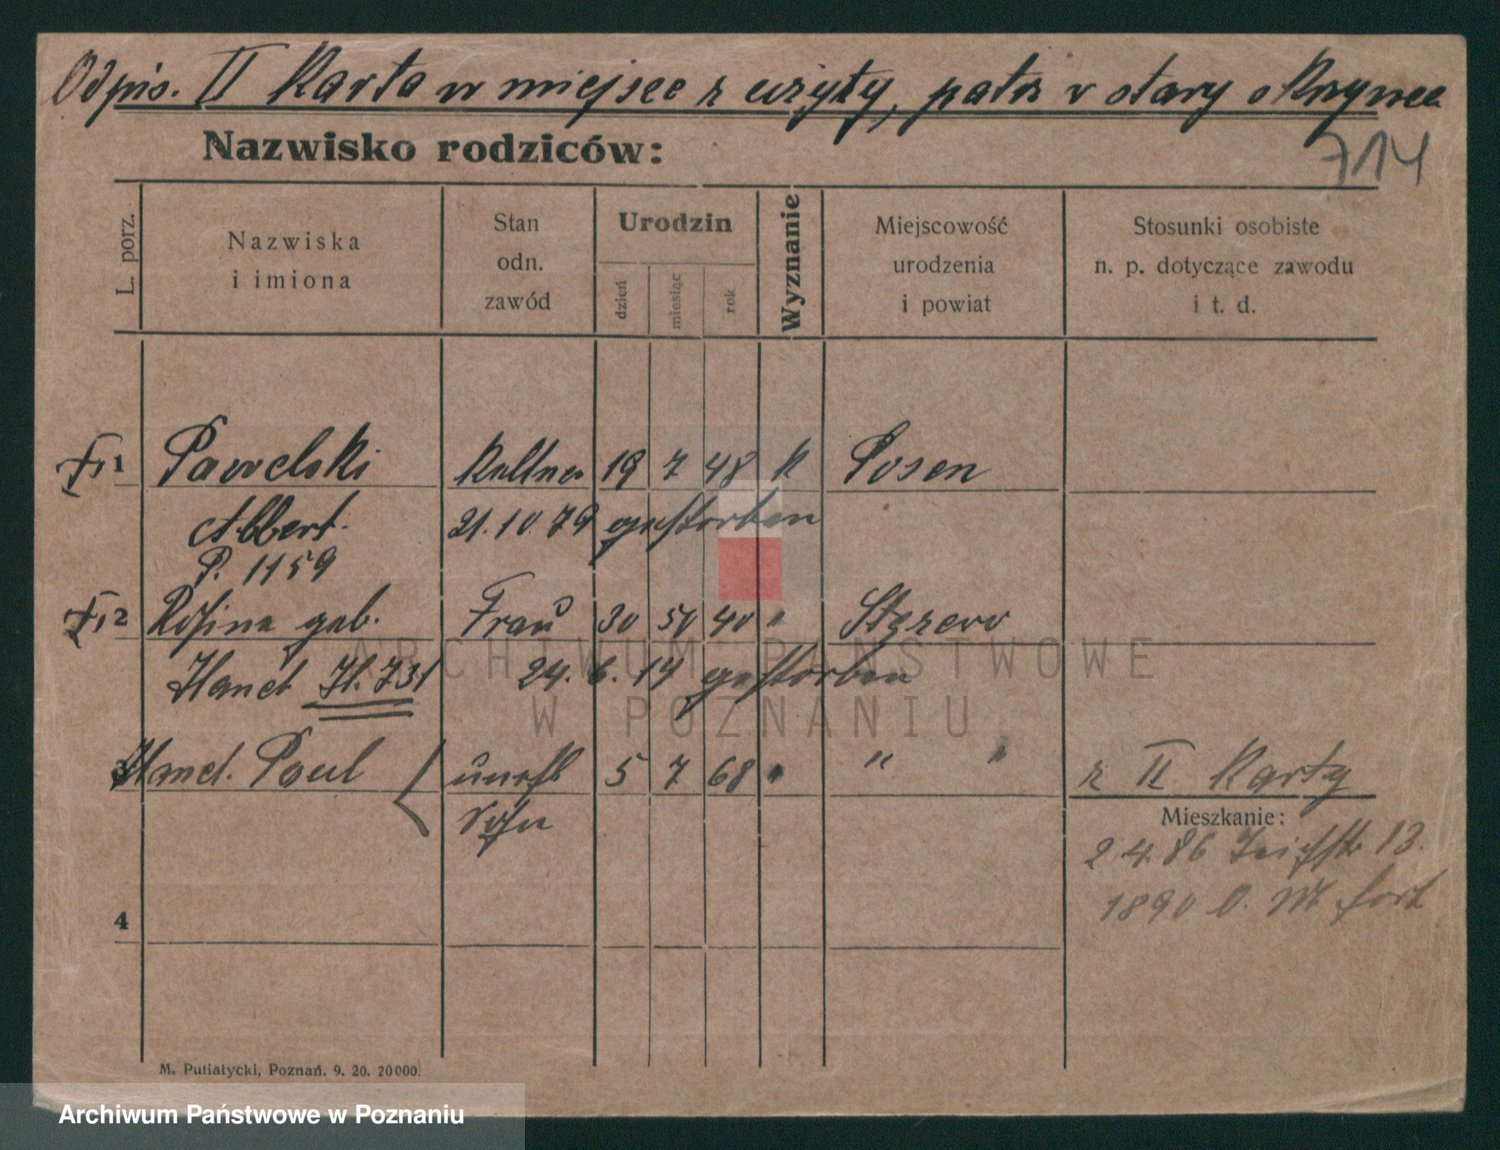 Odpis. II Karta w miejsce z użyty, patrz v stary
714
Nazwisko rodziców:
L. porz.
Nazwiska i imiona
Stan odn. zawód
Urodzin
dzień miesiąc rok
Wyznanie
Miejscowość urodzenia i powiat
Stosunki osobiste n. p. dotyczące zawodu i t. d.
1 Pawelski Kellner 19 7 48 k Posen
Albert 21.10.79 gestorben
P. 1159
2 Rosina geb. Frau 30 40 " 
Hanct 24. 6. 14 gestorben
3 Hanct. Paul unehl 5 7 68 " " " z II Karty
Sohn
Mieszkanie:
2.4.86 13.
1890 fort
4
M. Putiatycki, Poznań. 9. 20. 20000.
ARCHIWUM PAŃSTWOWE
W POZNANIU
Archiwum Państwowe w Poznaniu